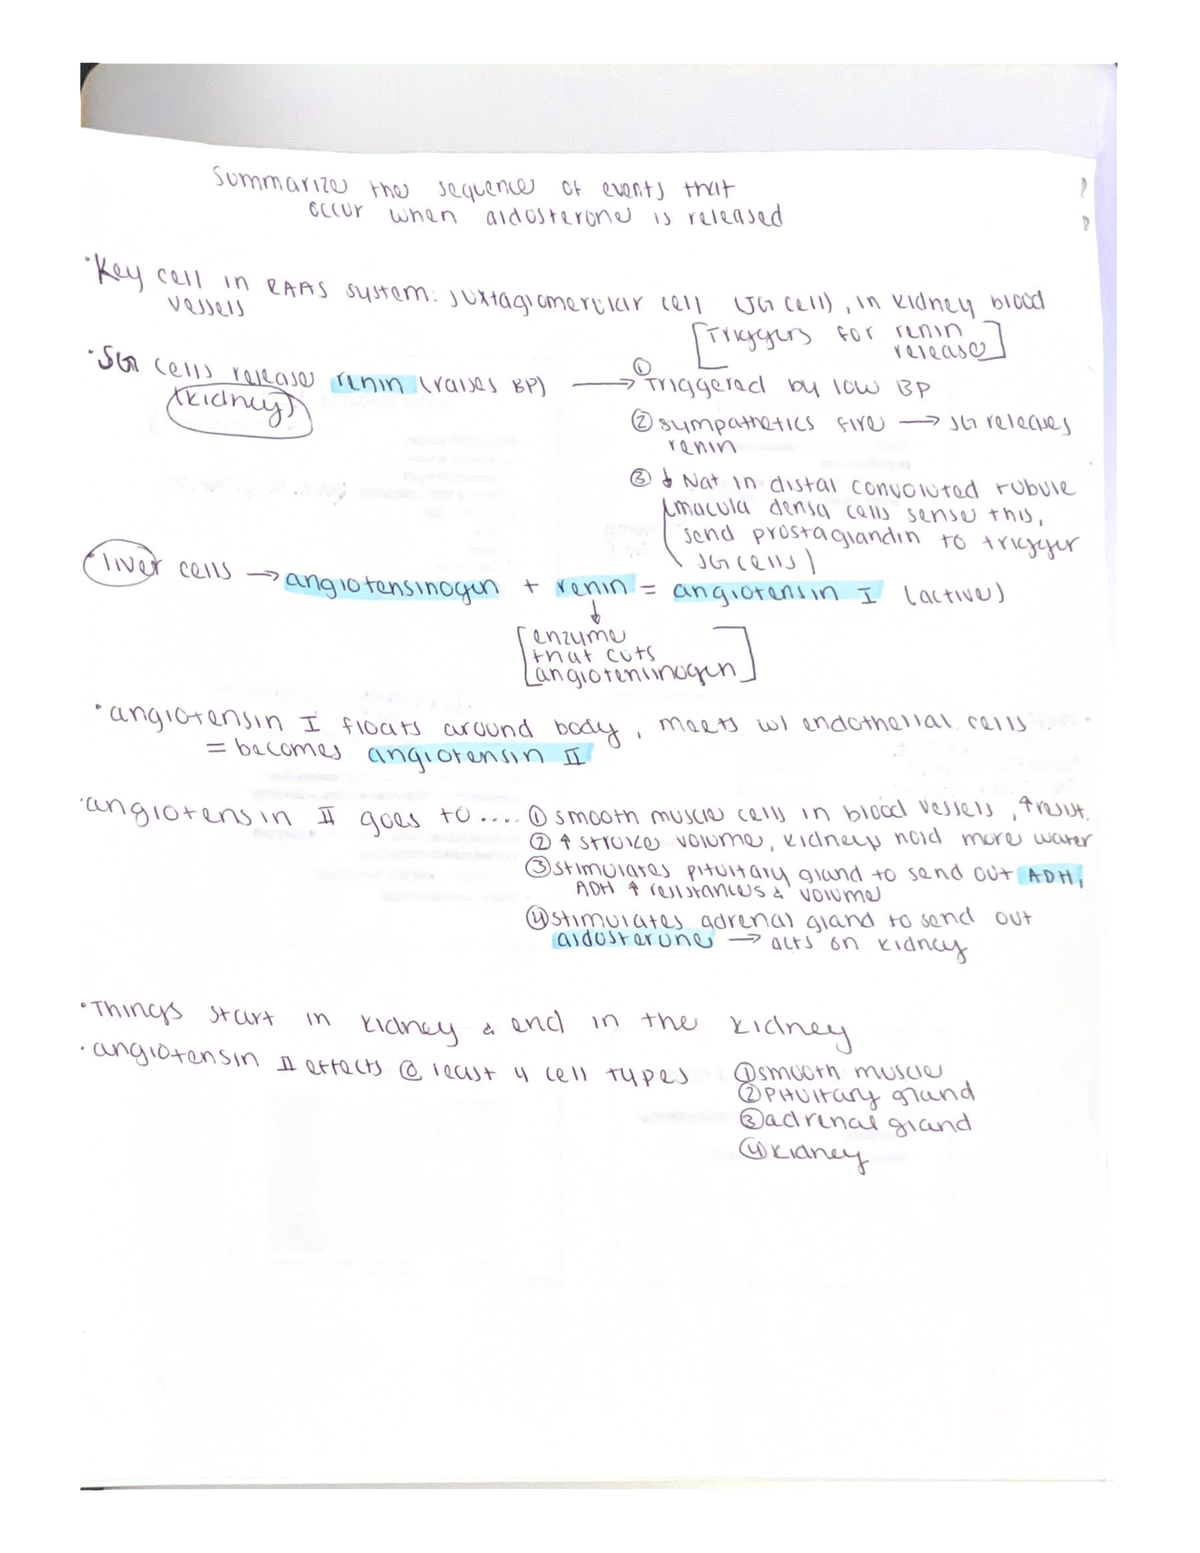 Summarize the sequence of events that
occur when aldosterone is released
• Key cell in RAAS system: juxtaglomerular cell (JG cell), in kidney blood
vessels
[Triggers for renin
release]
• JG cells release renin (raises BP) → ① Triggered by low BP
(kidney)
② sympathetics fire → JG releases
renin
③ ↓ Na+ in distal convoluted tubule
(macula densa cells sense this,
send prostaglandin to trigger
JG cells)
• liver cells → angiotensinogen + renin = angiotensin I (active)
↓
[enzyme
that cuts
angiotensinogen]
• angiotensin I floats around body, meets w/ endothelial cells
= becomes angiotensin II
• angiotensin II goes to .... ① smooth muscle cells in blood vessels, ↑ resist.
② ↑ stroke volume, kidneys hold more water
③ stimulates pituitary gland to send out ADH,
ADH ↑ resistances & volume
④ stimulates adrenal gland to send out
aldosterone → acts on kidney
• Things start in kidney & end in the kidney
• angiotensin II effects @ least 4 cell types ① smooth muscle
② pituitary gland
③ adrenal gland
④ kidney